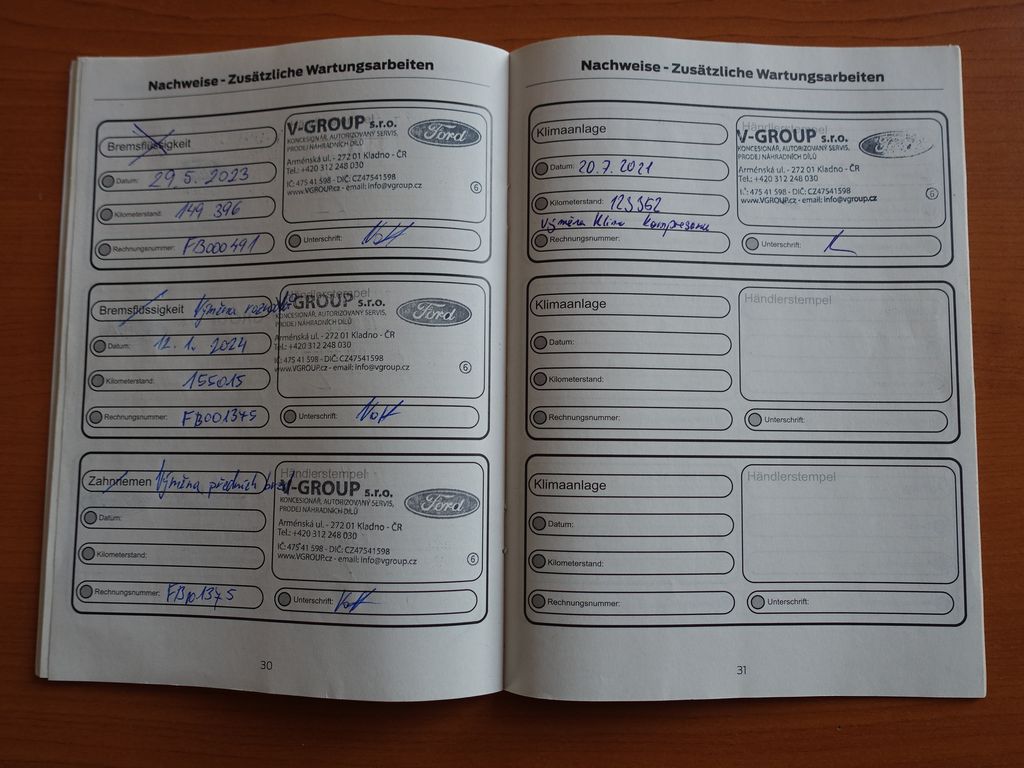 Nachweise - Zusätzliche Wartungsarbeiten
Bremsflüssigkeit
Datum: 29. 5. 2023
Kilometerstand: 149 396
Rechnungsnummer: FB000491
V-GROUP s.r.o.
KONCESIONÁŘ, AUTORIZOVANÝ SERVIS,
PRODEJ NÁHRADNÍCH DÍLŮ
Arménská ul. - 272 01 Kladno - ČR
Tel.: +420 312 248 030
IČ: 475 41 598 - DIČ: CZ47541598
www.VGROUP.cz - email: info@vgroup.cz
Ford
6
Unterschrift:
Bremsflüssigkeit Výměna
Datum: 12. 1. 2024
Kilometerstand: 155015
Rechnungsnummer: FB001375
Händlerstempel
V-GROUP s.r.o.
KONCESIONÁŘ, AUTORIZOVANÝ SERVIS,
PRODEJ NÁHRADNÍCH DÍLŮ
Arménská ul. - 272 01 Kladno - ČR
Tel.: +420 312 248 030
IČ: 475 41 598 - DIČ: CZ47541598
www.VGROUP.cz - email: info@vgroup.cz
Ford
6
Unterschrift:
Zahnriemen Výměna předních
Datum:
Kilometerstand:
Rechnungsnummer: FB001375
Händlerstempel
V-GROUP s.r.o.
KONCESIONÁŘ, AUTORIZOVANÝ SERVIS,
PRODEJ NÁHRADNÍCH DÍLŮ
Arménská ul. - 272 01 Kladno - ČR
Tel.: +420 312 248 030
IČ: 475 41 598 - DIČ: CZ47541598
www.VGROUP.cz - email: info@vgroup.cz
Ford
6
Unterschrift:
30
Nachweise - Zusätzliche Wartungsarbeiten
Klimaanlage
Datum: 20. 7. 2021
Kilometerstand: 123352
Výměna Klima kompresoru
Rechnungsnummer:
Händlerstempel
V-GROUP s.r.o.
KONCESIONÁŘ, AUTORIZOVANÝ SERVIS,
PRODEJ NÁHRADNÍCH DÍLŮ
Arménská ul. - 272 01 Kladno - ČR
Tel.: +420 312 248 030
IČ: 475 41 598 - DIČ: CZ47541598
www.VGROUP.cz - email: info@vgroup.cz
Ford
6
Unterschrift:
Klimaanlage
Datum:
Kilometerstand:
Rechnungsnummer:
Händlerstempel
Unterschrift:
Klimaanlage
Datum:
Kilometerstand:
Rechnungsnummer:
Händlerstempel
Unterschrift:
31